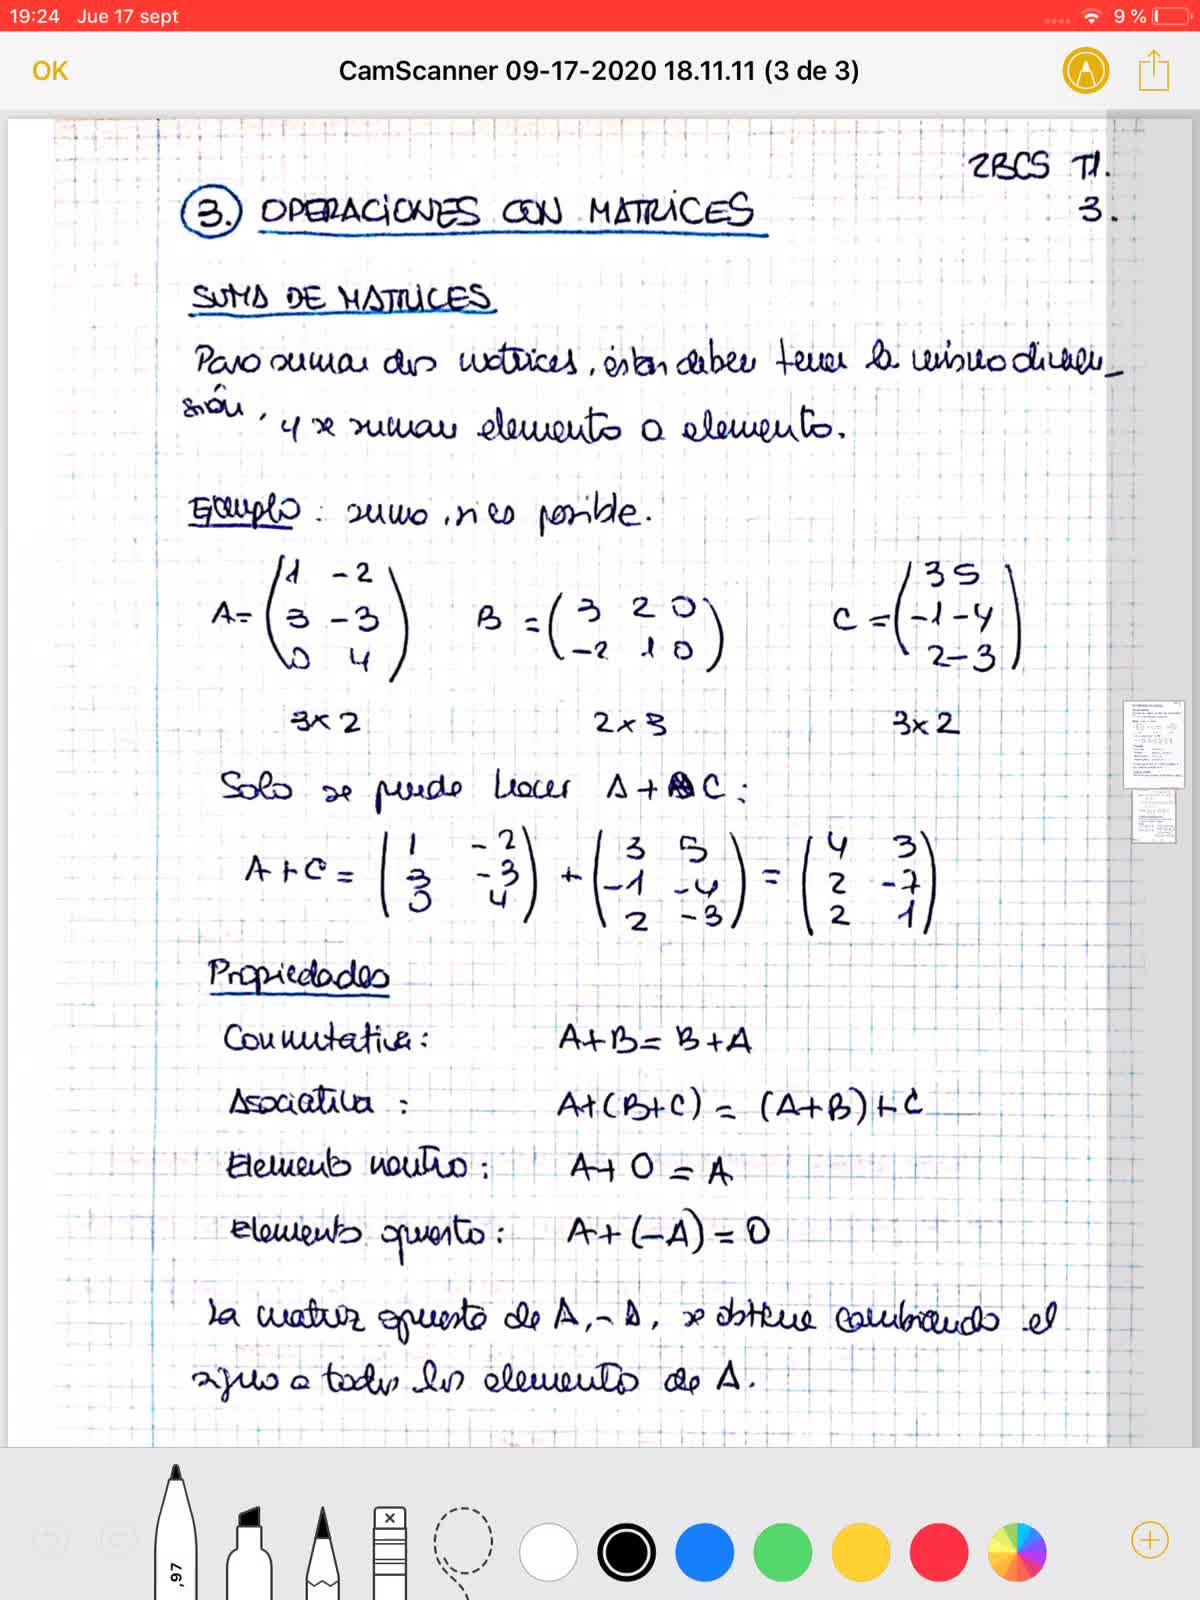 19:24 Jue 17 sept 9 %
OK CamScanner 09-17-2020 18.11.11 (3 de 3)
2BCS T1.
3.
3. OPERACIONES CON MATRICES
SUMA DE MATRICES
Para sumar dos matrices, éstas deben tener la misma dimen-
sión, y se suman elemento a elemento.
Ejemplo: suma, si es posible.
A= (1 -2
3 -3
0 4)
B = (3 2 0
-2 1 0)
C = (3 5
-1 -4
2 -3)
3x2 2x3 3x2
Solo se puede hacer A + C:
A+C = (1 -2
3 -3
0 4) + (3 5
-1 -4
2 -3) = (4 3
2 -7
2 1)
Propiedades
Conmutativa: A+B = B+A
Asociativa: A+(B+C) = (A+B)+C
Elemento neutro: A+0 = A
Elemento opuesto: A+(-A) = 0
La matriz opuesta de A, -A, se obtiene cambiando el
signo a todos los elementos de A.
,97